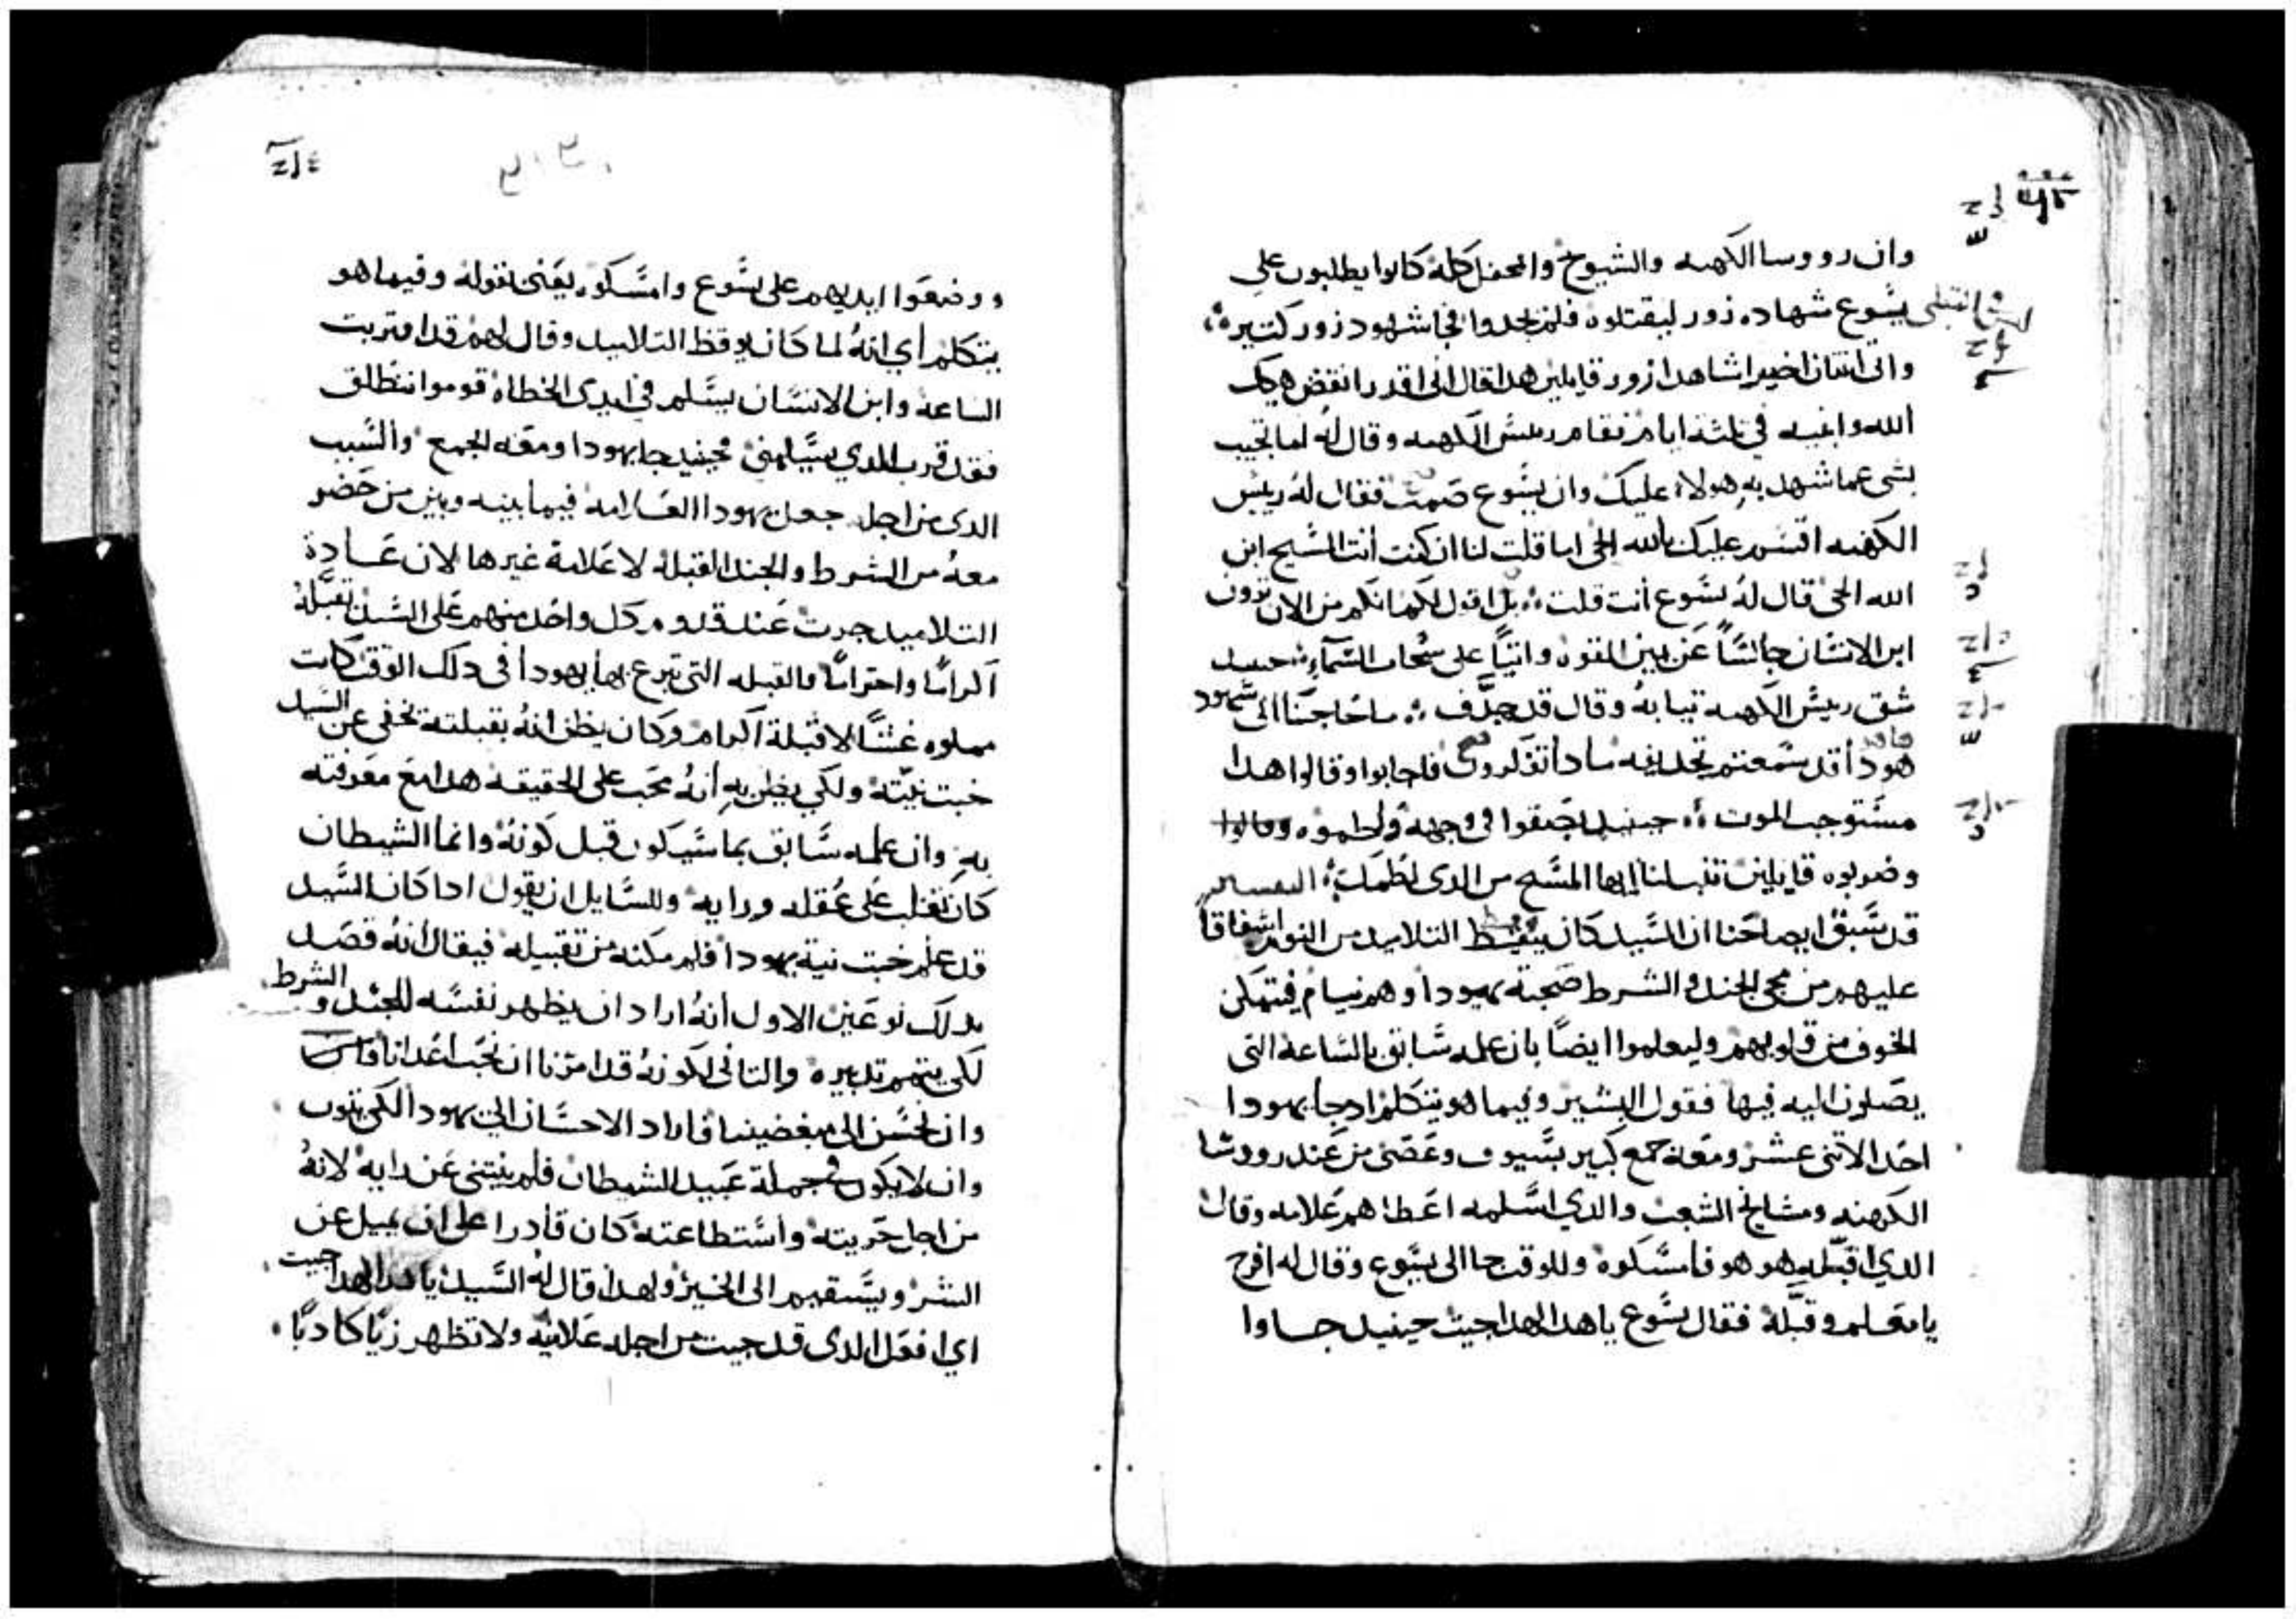 وان رووسا الكهنه والشيوخ والمحفل كله كانوا يطلبون على
يسوع شهاده زور ليقتلوه فلم يجدوا فجا شهود زور كتيره
واتى اتنان اخيرا شاهدا زور قايلين هدا قال انى اقدر انقض هيكل
الله وابنيه في تلثة ايام فقام رييس الكهنه وقال له اما تجيب
بشى عما شهد به هولاء عليك وان يسوع صمت فقال له رييس
الكهنه اقسم عليك بالله الحى اما قلت لنا ان كنت أنت المسيح ابن
الله الحى قال له يسوع أنت قلت بل اقول لكم انكم من الان ترون
ابن الانسان جالسًا عن يمين القوه واتيًا على سحاب السمآء حينيد
شق رييس الكهنه تيابه وقال قد جدف ما حاجتنا الى شهود
هودا قد سمعتم تجديفه مادا تقولون فاجابوا وقالوا هدا
مستوجب الموت حينيد بصقوا في وجهه ولطموه وقالوا
وضربوه قايلين تنبا لنا ايها المسيح من الدى لطمك التفسير
قد سبق ايضاحنا ان السيد كان ييقظ التلاميد من النوم اشفاقا
عليهم من مجى الجند والشرط صحبة يهودا وهم نيام فيتمكن
الخوف من قلوبهم وليعلموا ايضًا بان علمه سابق بالساعة التى
يصلون اليه فيها فقول البشير وفيما هو يتكلم ادجا يهودا
احد الاتنى عشر ومعه جمع كبير بسيوف وعصى من عند رووسا
الكهنه ومشايخ الشعب والدي اسلمه اعطاهم علامه وقال
الدي اقبله هو هو فامسكوه وللوقت جا الى يسوع وقال له افرح
يا معلم وقبله فقال يسوع يا هدا الهدا جيت حينيد جاوا
ووضعوا ايديهم على يسوع وامسكوه يعنى بقوله وفيما هو
يتكلم أي انه لما كان يوقظ التلاميد وقال لهم قد اقتربت
الساعة وابن الانسان يسلم في ايدى الخطاه قوموا ننطلق
فقد قرب الدي يسلمنى فحينيد جا يهودا ومعه الجمع والسبب
الدى من اجله جعل يهودا العلامه فيما بينه وبين من حضر
معه من الشرط والجند القبله لا علامة غيرها لان عادة
التلاميد جرت عند قدوم كل واحد منهم على السيد تقبله
اكرامًا واحترامًا فالقبله التى تبرع بها يهودا في دلك الوقت كانت
مملوه غشًا لا قبلة اكرام وكان يظن انه بقبلته تخفى عن السيد
خبت نيته ولكي يظن به أنه محب على الحقيقه هدا مع معرفته
به وان علمه سابق بما سيكون قبل كونه وانما الشيطان
كان تغلب على عقله ورايه وللسايل ان يقول ادا كان السيد
قد علم خبت نية يهودا فلم مكنه من تقبيله فيقال أنه قصد
بدلك نوعين الاول أنه اراد ان يظهر نفسه للجند والشرط
لكى يتمم تدبيره والتانى لكونه قد امرنا ان نحب اعدانا
وان نحسن الى مبغضينا فاراد الاحسان الى يهودا لكى يتوب
وان لا يكون في جملة عبيد الشيطان فلم ينتنى عن رايه لانه
من اجل حريته واستطاعته كان قادرا على ان يميل عن
الشر ويستقيم الى الخير ولهدا قال له السيد يا هدا الهدا جيت
اي افعل الدى قد جيت من اجله علانيه ولا تظهر زيًا كادبًا